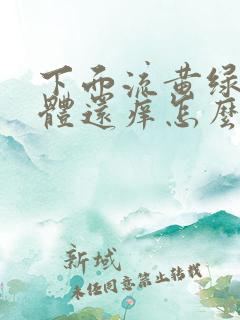 下面流黄绿
體還痒怎麼
新域
未经同意禁止转载